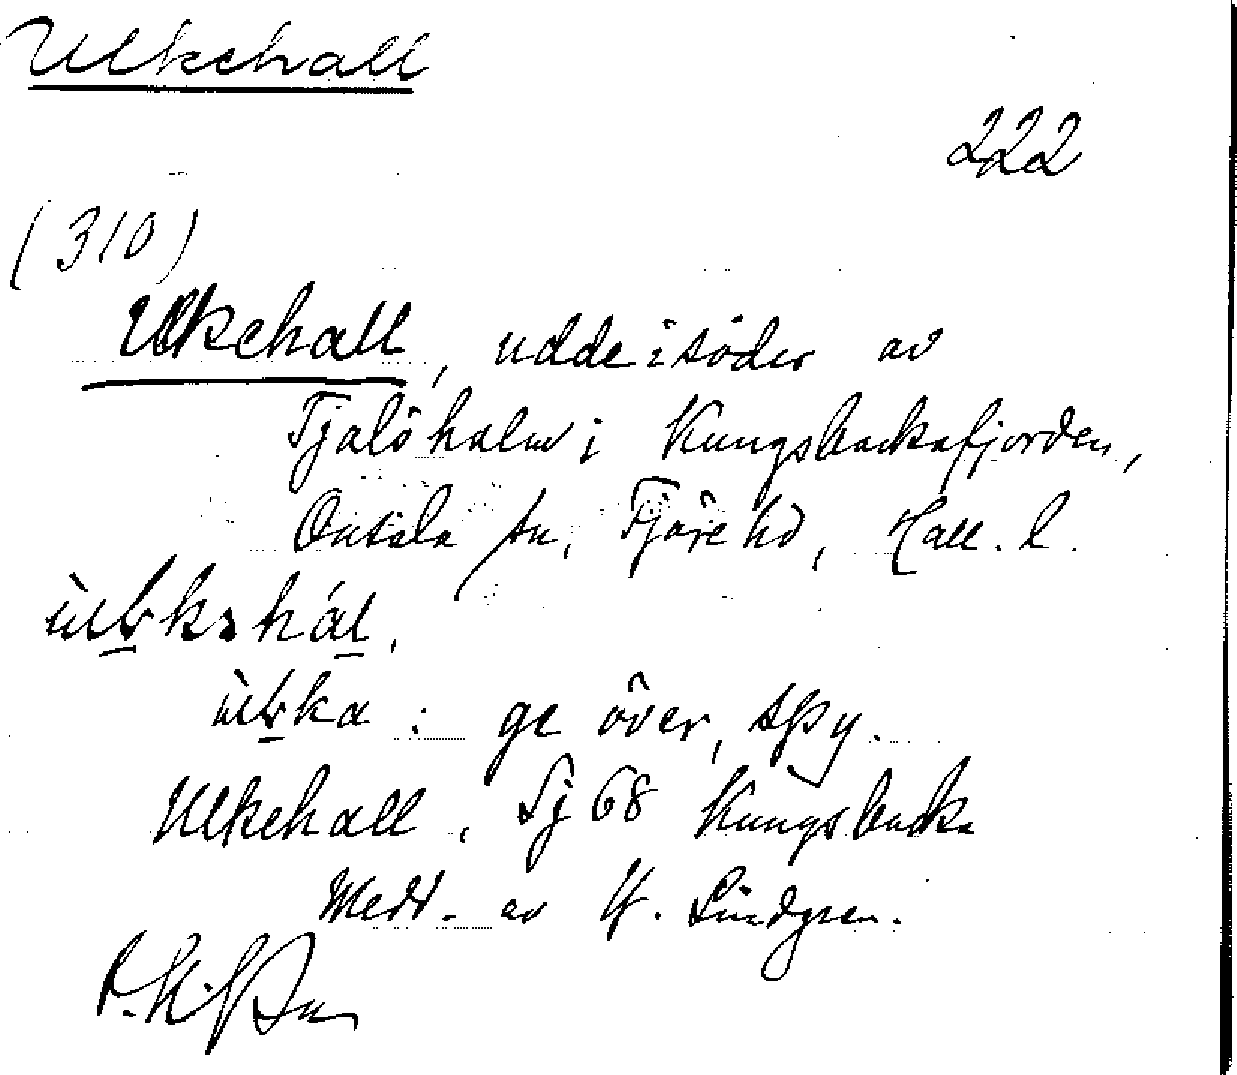 Ulkehall
222
(310)
Ulkehall, udde i söder av
Tjolöholm i Kungsbackafjorden,
Onsala sn, Fjäre hd, Hall. l.
ka : ge över, spy.
Ulkehall, Sj 68 Kungsbacka
Medd. av H. Lindgren.